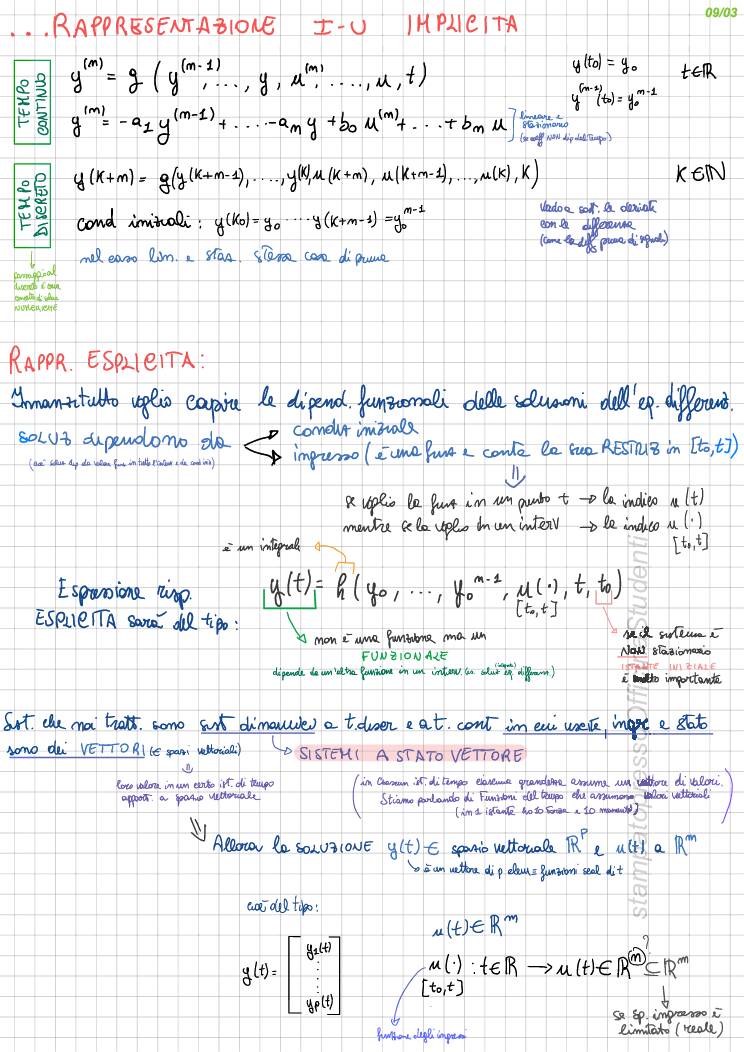 09/03
...RAPPRESENTAZIONE I-U IMPLICITA
TEMPO CONTINUO
y^(m) = g ( y^(m-1), ..., y, u^(m), ...., u, t )
y(t0) = y0
t∈ℝ
y^(m-1)(t0) = y0^m-1
y^(m) = -a1 y^(m-1) + ....-am y + b0 u^(m) + ...+ bm u
lineare e stazionario
(se coeff NON dip dal tempo)
TEMPO DISCRETO
y(K+m) = g(y(K+m-1), ...., y(K), u(K+m), u(K+m-1), ..., u(K), K)
K∈ℕ
cond iniziali: y(K0) = y0 ..... y(K+m-1) = y0^m-1
Vado a sost. le derivate
con le differenze
nel caso lin. e stas. stessa cosa di prima
passaggio al
discreto è
NUMERICHE
RAPPR. ESPLICITA:
Innanzitutto voglio capire le dipend. funzionali delle soluzioni dell'eq. differenz.
SOLUZ dipendono da
condiz iniziale
ingresso (è una funz e conta la sua RESTRIZ in [t0,t])
⇓
se voglio la funz in un punto t → la indico u(t)
mentre se la voglio in un interv → la indico u(·)
[t0,t]
è un integrale
Espressione risp.
ESPLICITA sarà del tipo:
y(t) = h ( y0, ..., y0^m-1, u(·), t, t0 )
[t0,t]
non è una funzione ma un
FUNZIONALE
dipende da un'altra funzione in un interv. (es. soluz eq. different)
(integrale)
se il sistema è
NON stazionario
ISTANTE INIZIALE
è molto importante
Sist. che noi tratt. sono sist dinamici a t.discr e a t. cont in cui uscite, ingr e stato
sono dei VETTORI (∈ spazi vettoriali)
→ SISTEMI A STATO VETTORE
loro valore in un certo ist. di tempo
appart. a spazio vettoriale
(in ciascun ist. di tempo ciascuna grandezza assume un vettore di valori.
Stiamo parlando di Funzioni del tempo che assumono valori vettoriali
(in 1 istante ho 10 forze e 10 momenti))
Allora la SOLUZIONE y(t) ∈ spazio vettoriale ℝ^P e u(t) a ℝ^m
è un vettore di p elem = funzioni scal di t
cioè del tipo:
u(t) ∈ ℝ^m
y(t) = [ y1(t)
⋮
yp(t) ]
u(·) : t∈ℝ → u(t) ∈ ℝ^m ⊆ ℝ^m
?
[t0,t]
funzione degli ingressi
se sp. ingresso è
limitato (reale)
stampato presso Officina Studenti